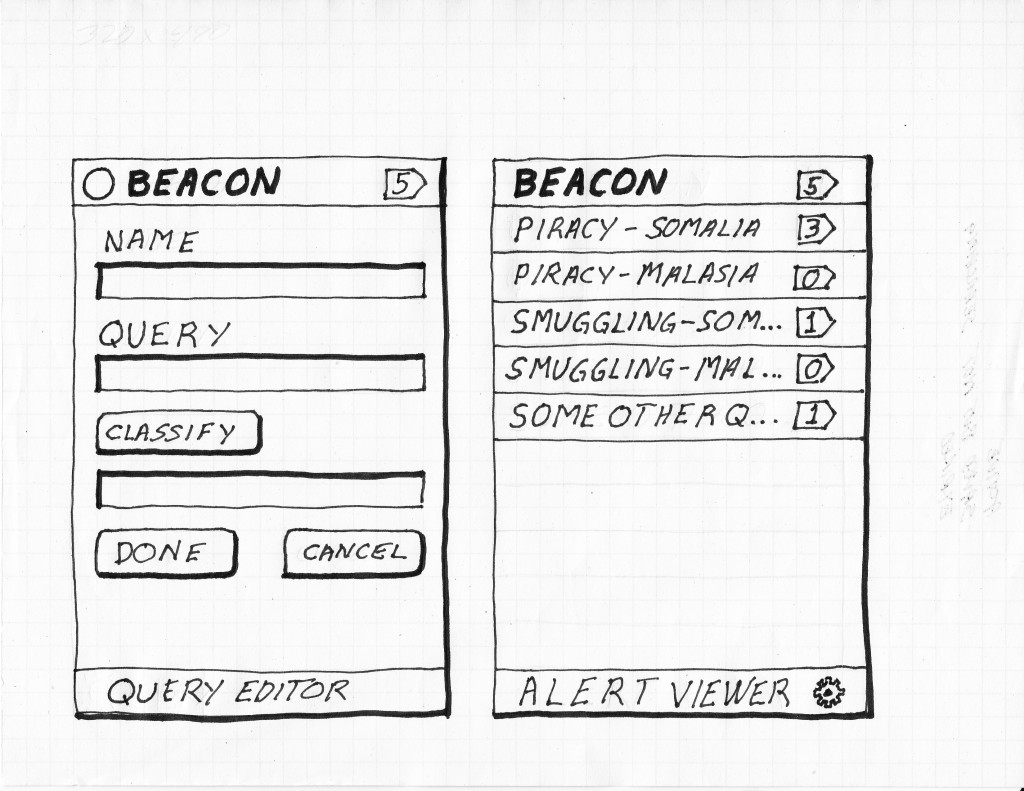 BEACON 5
NAME
QUERY
CLASSIFY
DONE CANCEL
QUERY EDITOR
BEACON 5
PIRACY - SOMALIA 3
PIRACY - MALASIA 0
SMUGGLING - SOM... 1
SMUGGLING - MAL... 0
SOME OTHER Q... 1
ALERT VIEWER